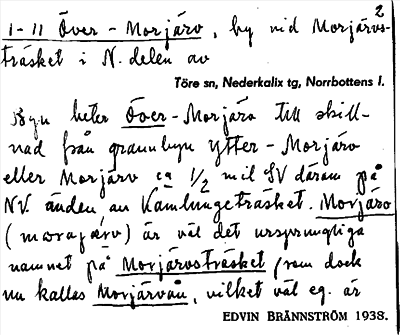 2
1-11 Över-Morjärv, by vid Morjärvs-
träsket i N. delen av
Töre sn, Nederkalix tg, Norrbottens l.
Byn heter Över-Morjärv till skill-
nad från grannbyn Ytter-Morjärv
eller Morjärv ca 1/2 mil SV därom på
NV. änden av Kamlungeträsket. Morjärv
( ) är väl det ursprungliga
namnet på Morjärvsträsket, som dock
nu kallas Morjärvån, vilket väl eg. är
EDVIN BRÄNNSTRÖM 1938.